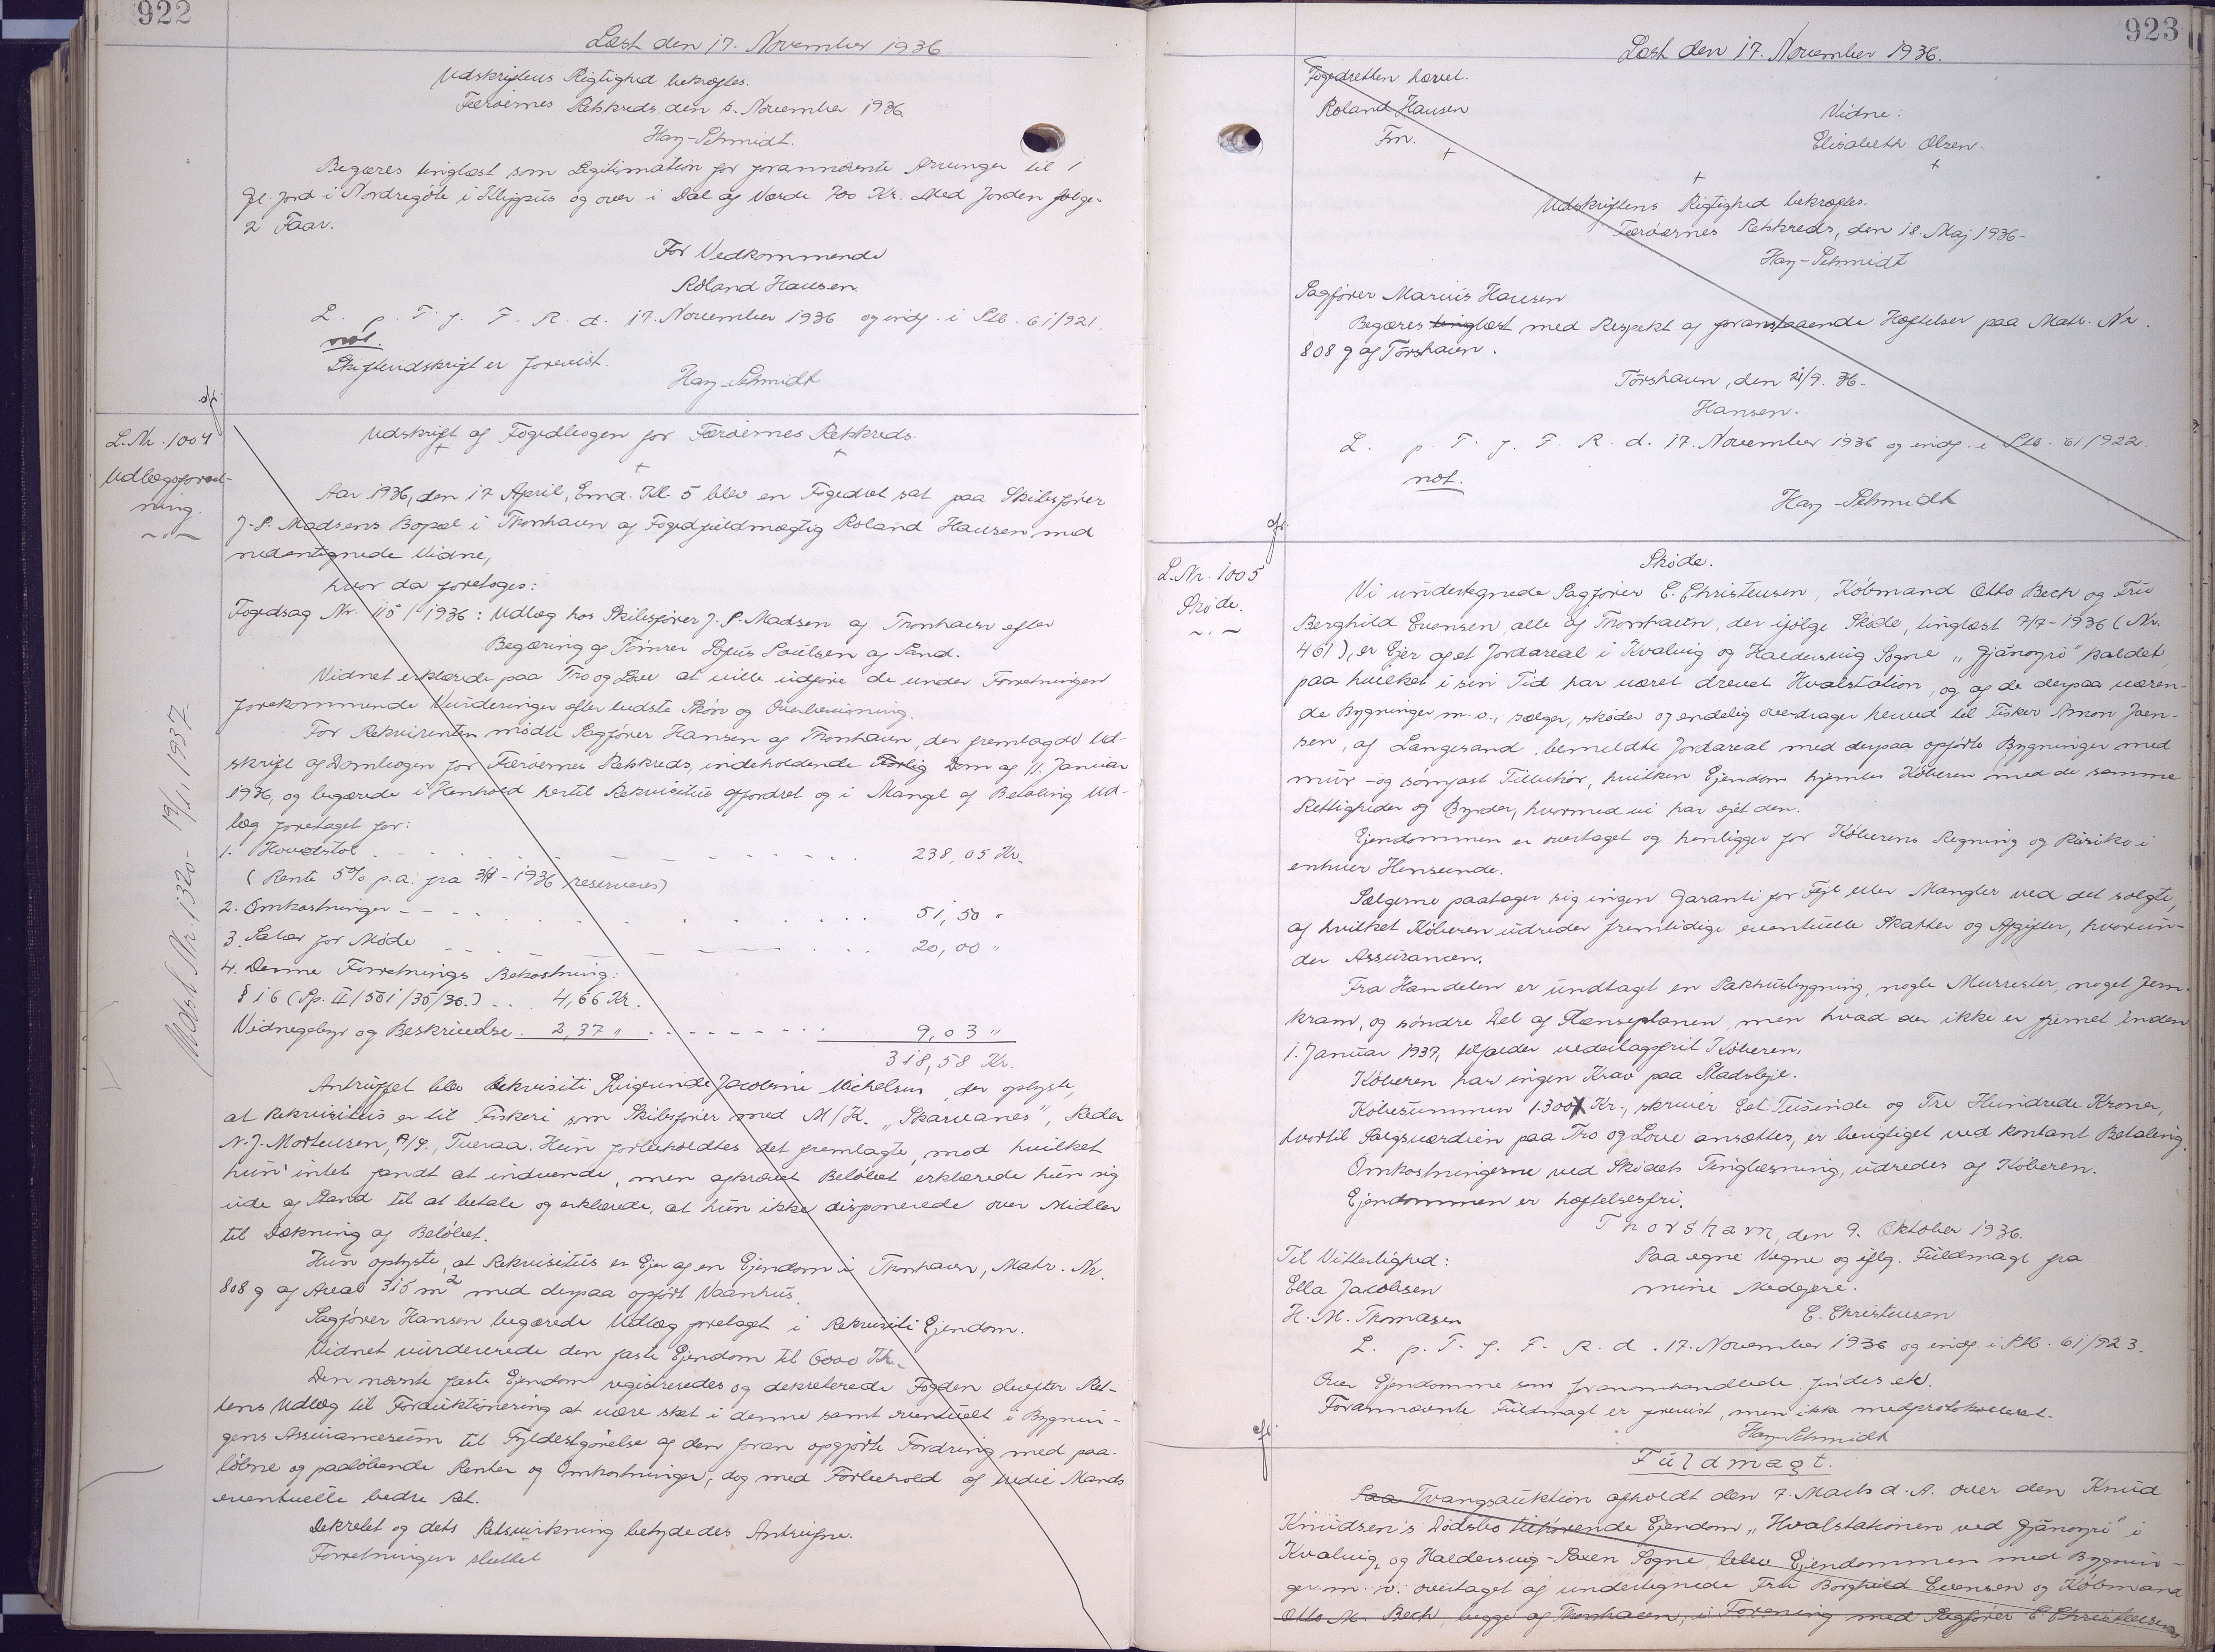 922
Læst den 17. November 1936
Udskriftens Rigtighed bekræftes.
Færøernes Retskreds, den 6. November 1936
Hay-Schmidt.
Begæres tinglæst som Legitimation for forannævnte Arvinger til 1
Gl. Jord i Nordregöte i Klippus og over i Dal af Værdi 700 Kr. Med Jorden følge-
2 Faar.
For Vedkommende
Roland Hansen.
L. p. T. f. F. R. d. 17. November 1936 og indf. i Ptb. 61/921.
not.
Skifteudskrift er forevist.
Hay-Schmidt
afr.
L. Nr. 1004
Udlægsforret-
ning.
Modst. Nr. 1320 - 19/11 1937.
Udskrift af Fogedbogen for Færøernes Retskreds.
Aar 1936, den 17 April, Emd. Kl. 5 blev en Fogedret sat paa Skibsfører
J. P. Madsens Bopæl i Thorshavn af Fogedfuldmægtig Roland Hansen med
nedentegnede Vidne,
hvor da foretoges:
Fogedsag Nr. 115/1936: Udlæg hos Skibsfører J. P. Madsen af Thorshavn efter
Begæring af Tömrer Sofus Poulsen af Sand.
Vidnet erklærede paa Tro og Love at ville udføre de under Forretningen
forekommende Vurderinger efter bedste Skön og Overbevisning.
For Rekvirenten mödte Sagfører Hansen af Thorshavn, der fremlagde Ud-
skrift af Dombogen for Færøernes Retskreds, indeholdende Forlig Dom af 11. Januar
1936, og begærede i Henhold hertil Rekvisitus affordret og i Mangel af Betaling Ud-
læg foretaget for:
1. Hovedstol 238,05 Kr.
(Rente 5% p.a. fra - 1936 reserveres)
2. Omkostninger 51,50 "
3. Salær for Møde 20,00 "
4. Denne Forretnings Bekostning:
§ 16 (Sp. II/551/35/36.) .. 4,66 Kr.
Vidnegebyr og Beskrivelse. 2,37 " 9,03 "
318,58 Kr.
Antruffet blev Rekvisiti Svigerinde Jacobine Michelsen, der oplyste,
at Rekvisitus er til Fiskeri som Skibsfører med M/K. "Skarvanes", Reder
N. J. Mortensen, A/S., Tveraa. Hun foreholdtes det fremlagte, mod hvilket
hun intet fandt at indvende, men afkrævet Beløbet erklærede hun sig
ude af Stand til at betale og erklærede, at hun ikke disponerede over Midler
til Dækning af Beløbet.
Hun oplyste, at Rekvisitus er Ejer af en Ejendom i Thorshavn, Matr. Nr.
808 g af Areal 315 m2 med derpaa opfört Vaanhus.
Sagfører Hansen begærede Udlæg foretaget i Rekvisiti Ejendom.
Vidnet vurderede den faste Ejendom til 6000 Kr.
Den nævnte faste Ejendom registreredes og dekreterede Fogden derefter Ret-
tens Udlæg til Forauktionering at være sket i denne samt eventuelt i Bygnin-
gens Assurancesum til Fyldestgørelse af den foran opgjorte Fordring med paa-
løbne og paaløbende Renter og Omkostninger, dog med Forbehold af tredie Mands
eventuelle bedre Ret.
Dekretet og dets Retsvirkning betydedes Antrufne.
Forretningen sluttet
923
Læst den 17. November 1936.
Fogedretten hævet.
Roland Hansen
Fm.
Vidne:
Elisabeth Olsen.
Udskriftens Rigtighed bekræftes.
Færøernes Retskreds, den 18. Maj 1936-
Hay-Schmidt
Sagfører Marius Hansen
Begæres tinglæst med Respekt af foranstaaende Hæftelser paa Matr. Nr.
808 g af Tórshavn.
Tórshavn, den 21/9. 36.
Hansen.
L. p. T. f. F. R. d. 17. November 1936 og indf. i Ptb. 61/922.
not.
Hay-Schmidt
afr.
L. Nr. 1005
Skøde.
Skøde.
Vi undertegnede Sagfører E. Christensen, Købmand Otto Bech og Fru
Berghild Evensen, alle af Thorshavn, der ifölge Skøde, tinglæst 7/7-1936 (Nr.
461), er Ejer af et Jordareal i Kvalvig og Haldersvig Sogne "Gjánoyri" kaldet,
paa hvilket i sin Tid har været drevet Hvalstation, og af de derpaa væren-
de Bygninger m.v., sælger, skøder og endelig overdrager herved til Fisker Amon Joen-
sen, af Langesand bemeldte Jordareal med derpaa opførte Bygninger med
mur- og sömfast Tilbehör, hvilken Ejendom hjemles Köberen med de samme
Rettigheder og Byrder, hvormed vi har ejet den.
Ejendommen er overtaget og henligger for Köberens Regning og Risiko i
enhver Henseende.
Sælgerne paatager sig ingen Garanti for Fejl eller Mangler ved det solgte,
af hvilket Köberen udreder fremtidige eventuelle Skatter og Afgifter, hvorun-
der Assurancen.
Fra Handelen er undtagt en Pakhusbygning, nogle Murrester, noget Jern-
kram, og söndre Del af Flænseplanen, men hvad der ikke er fjernet inden
1. Januar 1937, tilfalder vederlagsfrit Köberen.
Köberen har ingen Krav paa Pladsleje.
Köbesummen 1.300 Kr., skriver Eet Tusinde og Tre Hundrede Kroner,
hvortil Salgsværdien paa Tro og Love ansættes, er berigtiget ved kontant Betaling.
Omkostningerne ved Skødets Tinglæsning, udredes af Köberen.
Ejendommen er hæftelsesfri.
Thorshavn, den 9. Oktober 1936.
Til Vitterlighed:
Ella Jacobsen
H. M. Thomasen
Paa egne Vegne og iflg. Fuldmagt fra
mine Medejere.
E. Christensen
L. p. T. f. F. R. d. 17. November 1936 og indf. i Ptb. 61/923.
Over Ejendomme som foranomhandlede findes ek.
Forannævnte Fuldmagt er forevist, men ikke medprotokolleret.
Hay-Schmidt
afr.
Fuldmagt.
Paa Tvangsauktion afholdt den 7. Marts d. A. over den Knud
Knudsen's Dødsbo tilhørende Ejendom "Hvalstationen ved Gjánoyri" i
Kvalvig og Haldersvig-Saxen Sogne, blev Ejendommen med Bygnin-
ger m. v. overtaget af undertegnede Fru Borghild Evensen og Köbmand
Otto M. Bech, begge af Thorshavn, i Forening med Sagfører E Christensen